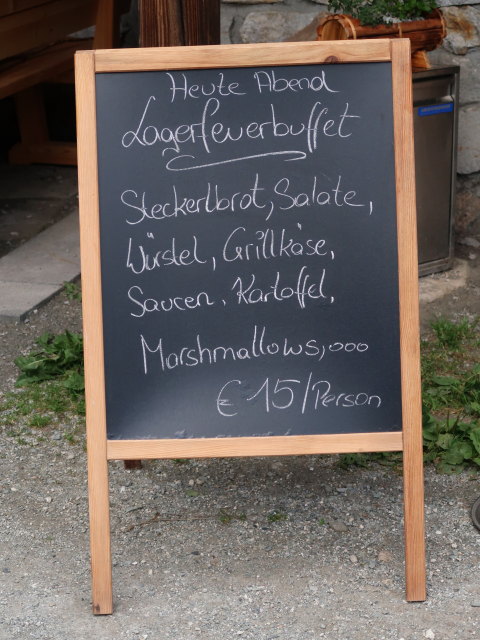 Heute Abend
Lagerfeuerbuffet
Steckerlbrot, Salate,
Würstel, Grillkäse,
Saucen, Kartoffel,
Marshmallows,ooo
€ 15/Person